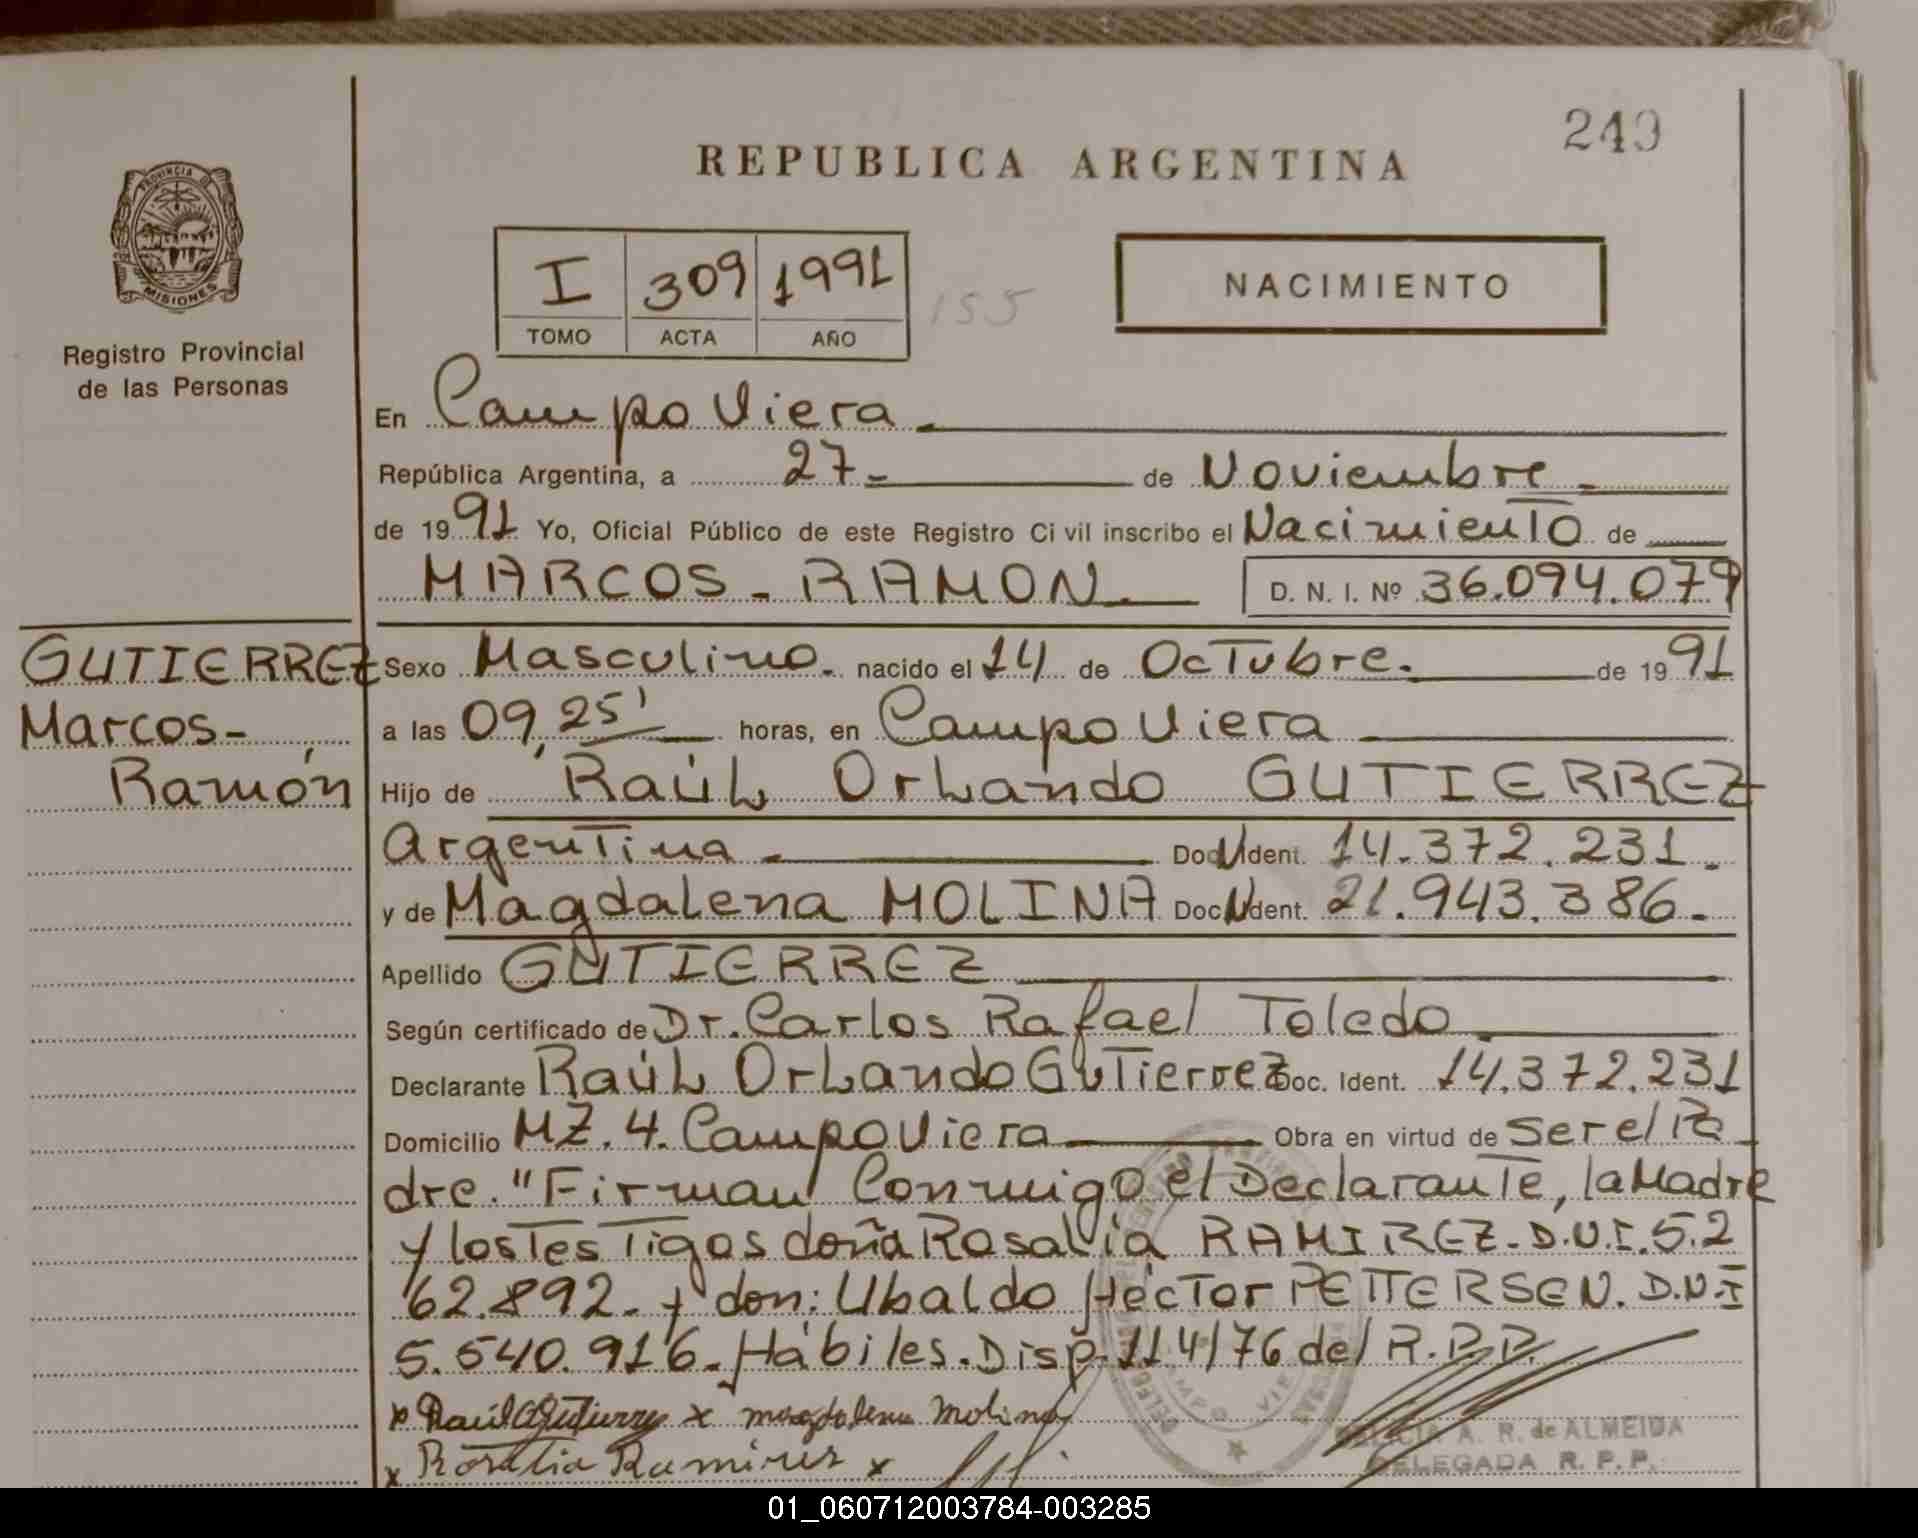 249
REPUBLICA ARGENTINA
PROVINCIA DE
MISIONES
Registro Provincial
de las Personas
I 309 1991
TOMO ACTA AÑO
155
NACIMIENTO
En Campo Viera
República Argentina, a 27 de Noviembre
de 1991 Yo, Oficial Público de este Registro Civil inscribo el Nacimiento de
MARCOS - RAMON D. N. I. Nº 36.094.079
GUTIERREZ
Marcos-
Ramón
Sexo Masculino. nacido el 14 de Octubre. de 1991
a las 09,25' horas, en Campo Viera
Hijo de Raúl Orlando GUTIERREZ
Argentina Doc. Ident. 14.372.231.
y de Magdalena MOLINA Doc. Ident. 21.943.386.
Apellido GUTIERREZ
Según certificado de Dr. Carlos Rafael Toledo
Declarante Raúl Orlando Gutierrez Doc. Ident. 14.372.231
Domicilio MZ. 4. Campo Viera Obra en virtud de ser el Pa
dre. "Firman Conmigo el Declarante, la Madre
y los Testigos doña Rosalía RAMIREZ. D.N.I. 5.2
62.892. y don: Ubaldo Héctor PETTERSEN. D.N.I
5.540.916. Hábiles. Disp. 114/76 del R.P.P.
x Raúl O Gutierrez x magdalena Molina
x Rosalia Ramirez x
A. R. de ALMEIDA
DELEGADA R. P. P.
01_060712003784-003285